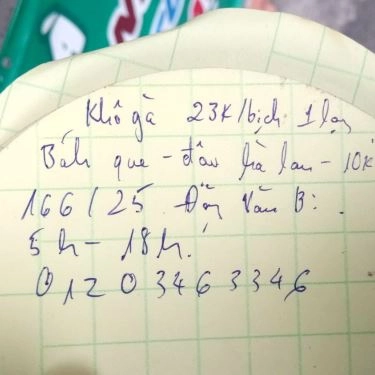 Khô gà 23K/bịch 1 lạng
Bánh que - đậu hà lan - 10K
166/25 Đặng Văn Bi.
5h - 18h.
01203463346